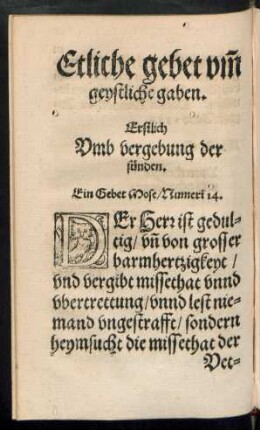 Etliche gebet vm̃
geystliche gaben.
Erstlich
Vmb vergebung der
sünden.
Ein Gebet Mose/Numeri 14.
DEr Herr ist gedul-
tig/ vñ von grosser
barmhertzigkeyt/
vnd vergibt missethat vnnd
vbertrettung/vnnd lest nie-
mand vngestrafft/ sondern
heymsucht die missethat der
Vet-